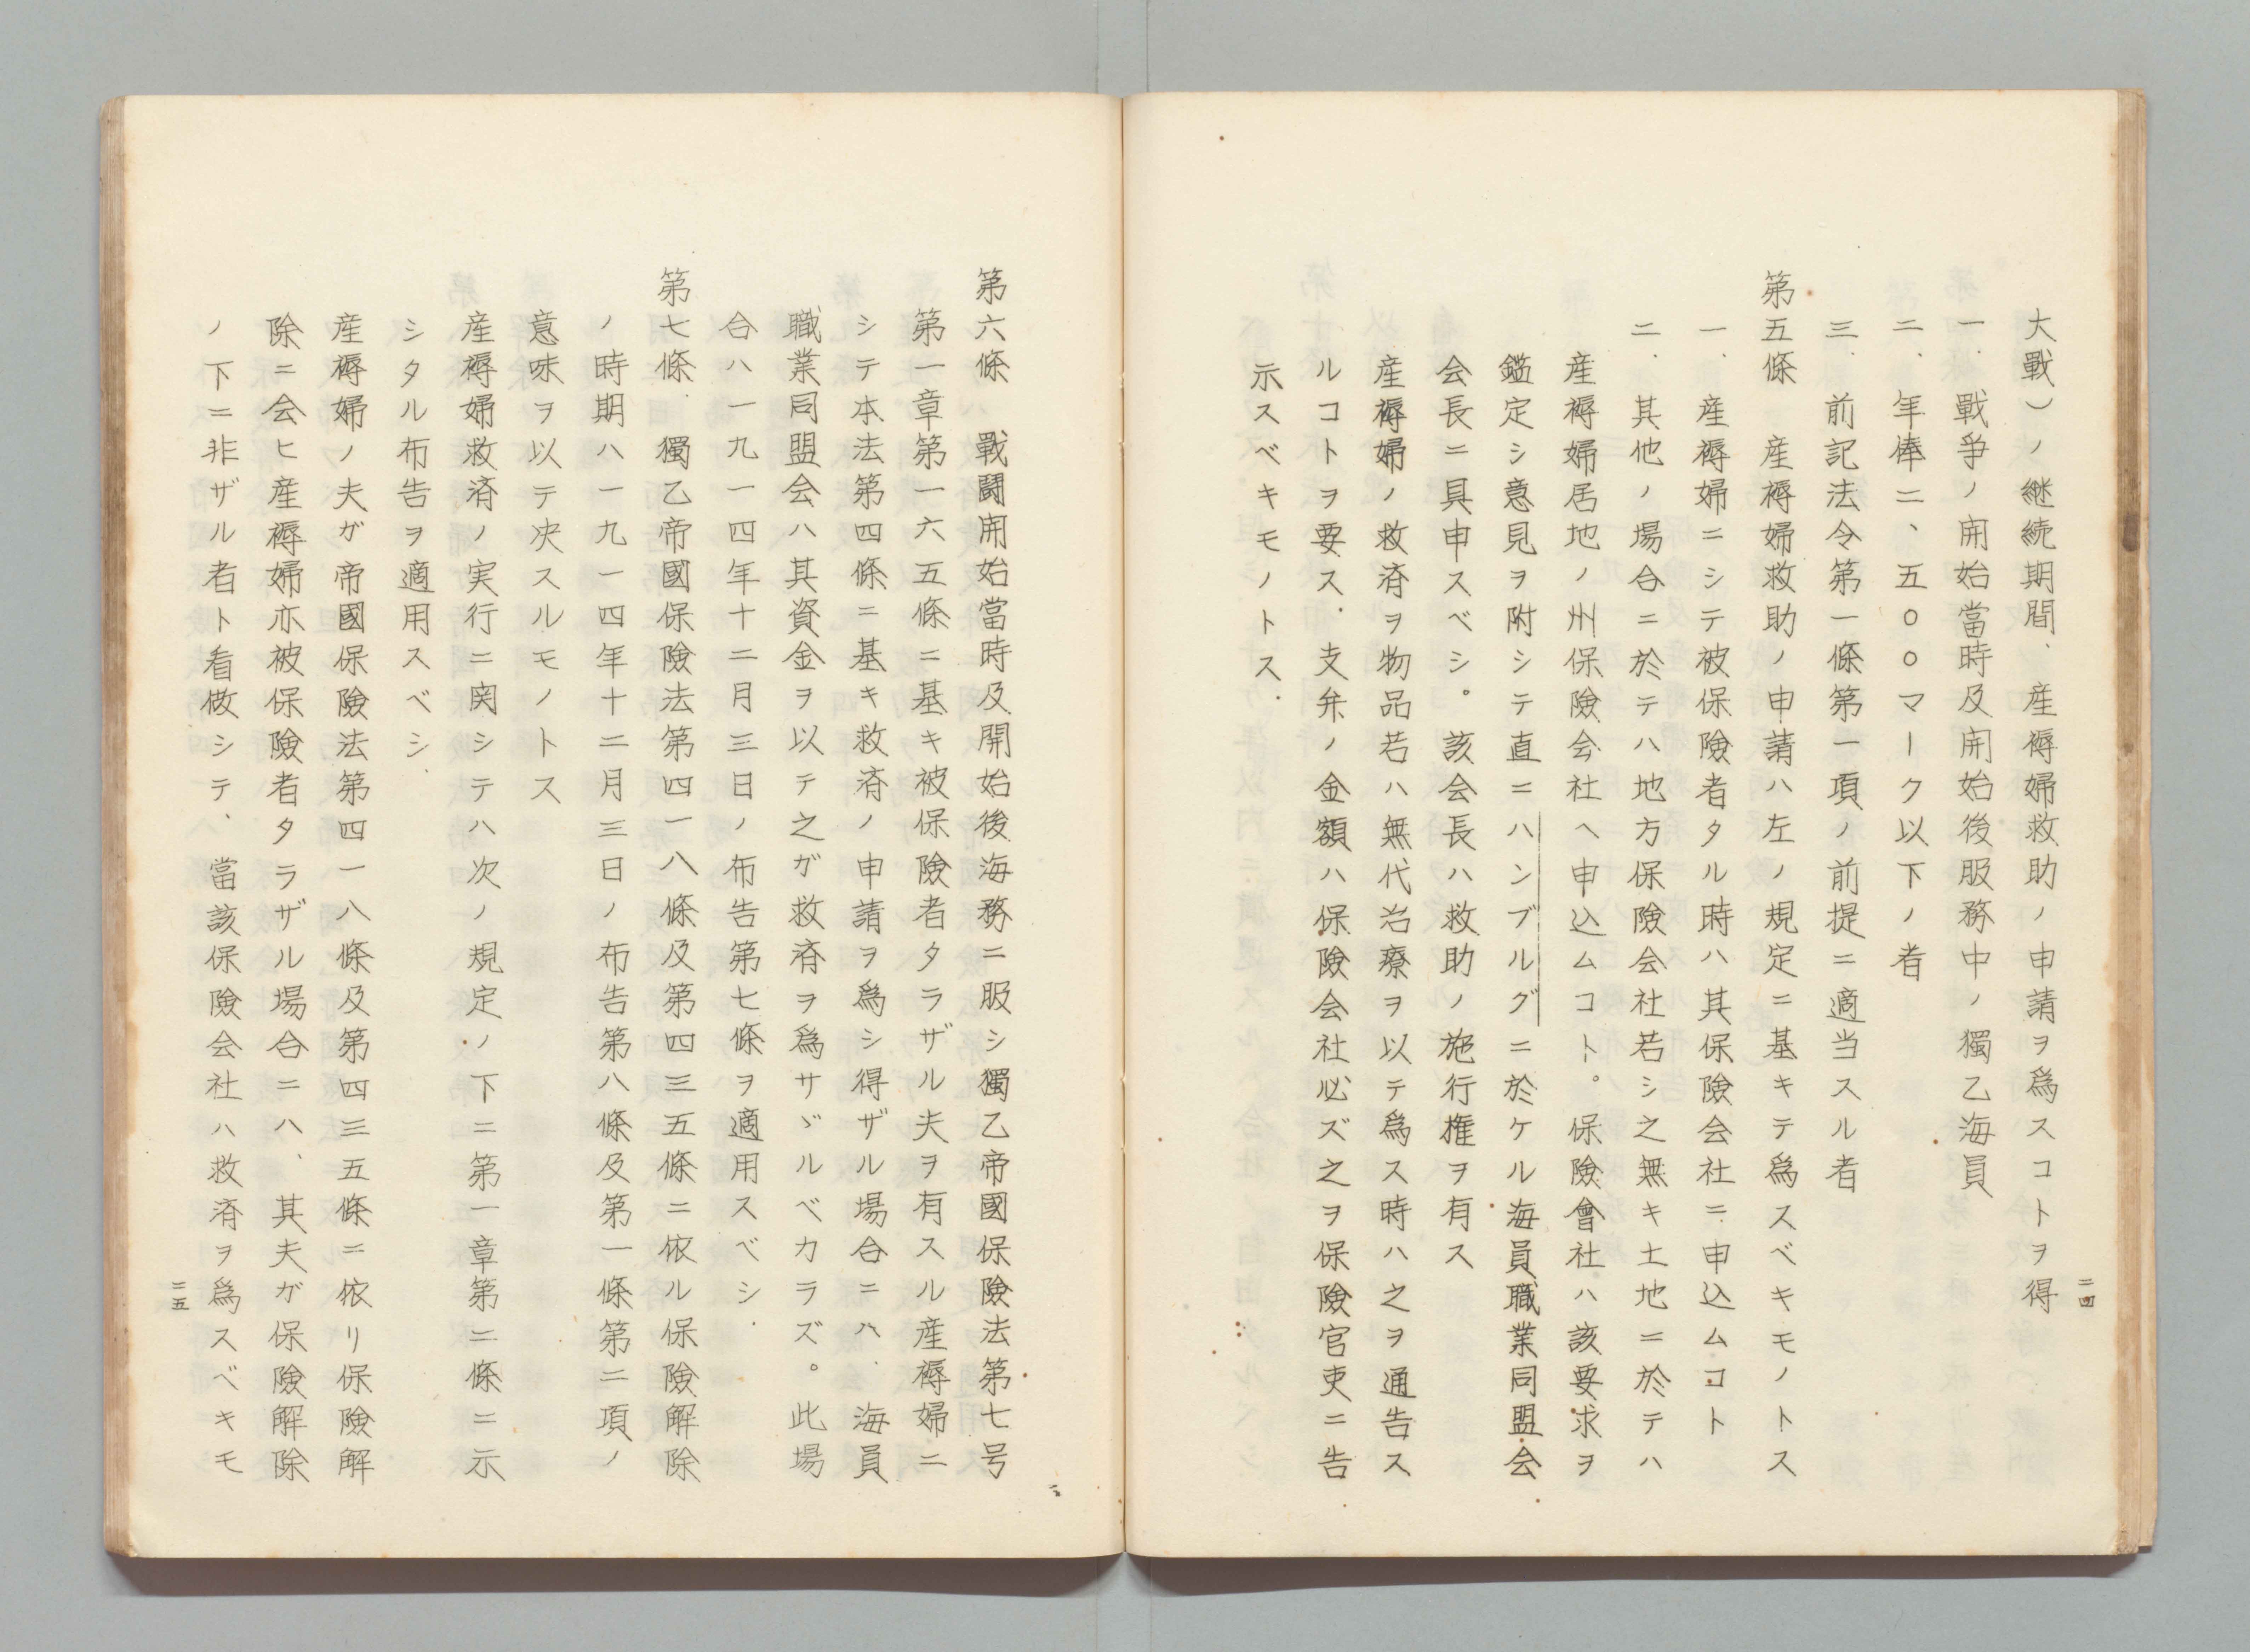 大戰)ノ継続期間、産褥婦救助ノ申請ヲ爲スコトヲ得
一.戰爭ノ開始當時及開始後服務中ノ獨乙海員
二、年俸二、五〇〇マーク以下ノ者
三.前記法令第一條第一項ノ前提ニ適当スル者
第五條　産褥婦救助ノ申請ハ左ノ規定ニ基キテ爲スベキモノトス
一、産褥婦ニシテ被保險者タル時ハ其保險会社ニ申込ムコト
二.其他ノ場合ニ於テハ地方保險会社若シ之無キ土地ニ於テハ
産褥婦居地ノ州保險会社ヘ申込ムコト。保險會社ハ該要求ヲ
鑑定シ意見ヲ附シテ直ニハンブルグニ於ケル海員職業同盟会
会長ニ具申スベシ。該会長ハ救助ノ施行権ヲ有ス
産褥婦ノ救済ヲ物品若ハ無代治療ヲ以テ爲ス時ハ之ヲ通告ス
ルコトヲ要ス.支弁ノ金額ハ保險会社必ズ之ヲ保險官吏ニ告
示スベキモノトス.
二四
第六條　戰鬪開始當時及開始後海務ニ服シ獨乙帝國保險法第七号
第一章第一六五條ニ基キ被保險者タラザル夫ヲ有スル産褥婦ニ
シテ本法第四條ニ基キ救済ノ申請ヲ爲シ得ザル場合ニハ.海員
職業同盟会ハ其資金ヲ以テ之ガ救済ヲ爲サヾルベカラズ。此場
合ハ一九一四年十二月三日ノ布告第七條ヲ適用スベシ.
第七條.獨乙帝國保險法第四一八條及第四三五條ニ依ル保險解除
ノ時期ハ一九一四年十二月三日ノ布告第八條及第一條第二項ノ
意味ヲ以テ决スルモノトス
産褥婦救済ノ実行ニ関シテハ次ノ規定ノ下ニ第一章第二條ニ示
シタル布告ヲ適用スベシ.
産褥婦ノ夫ガ帝國保險法第四一八條及第四三五條ニ依リ保險解
除ニ会ヒ産褥婦亦被保險者タラザル場合ニハ、其夫ガ保險解除
ノ下ニ非ザル者ト看做シテ、當該保險会社ハ救済ヲ爲スベキモ
二五